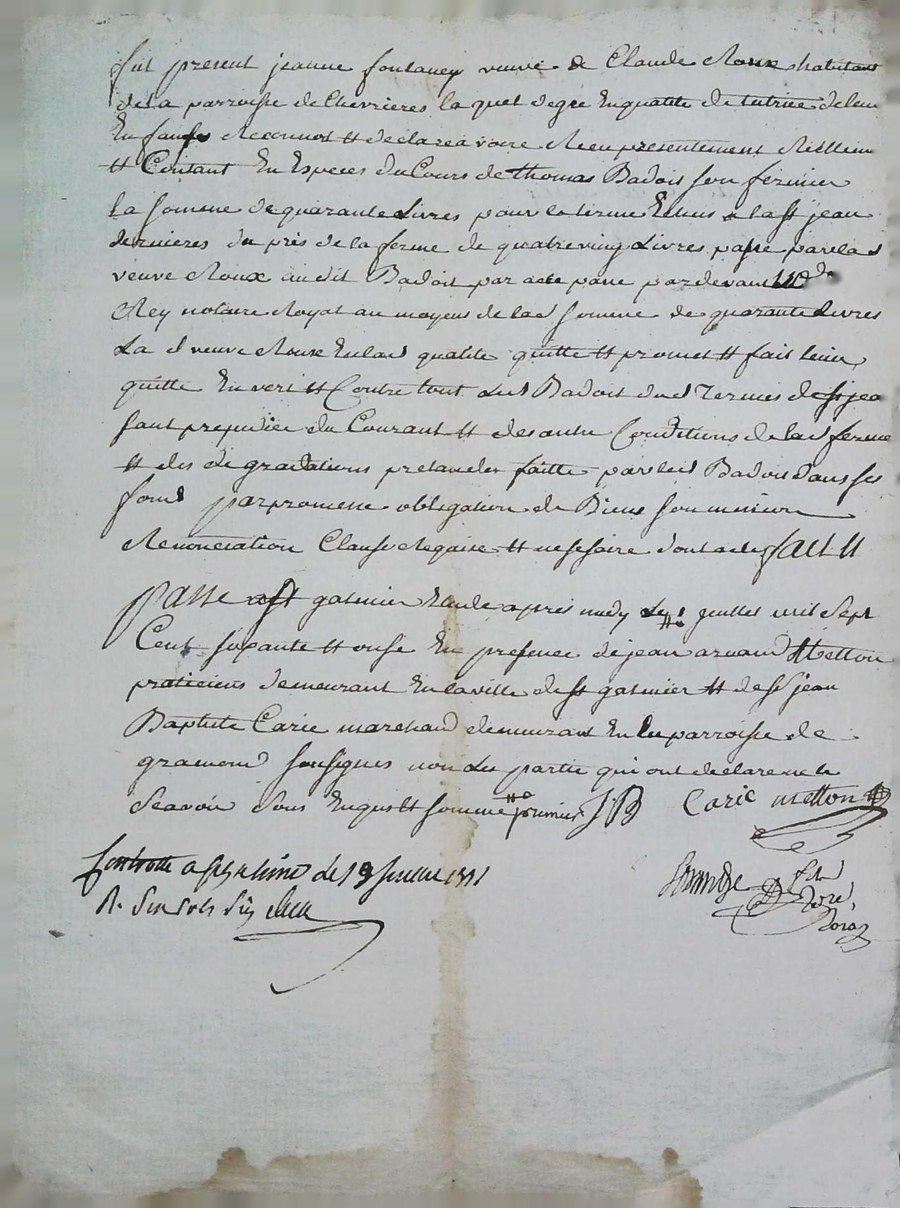 fut present jeanne fontaney veuve de Claude Roux habitant
de la parroisse de Chevrieres la quel degre En qualite de tutrice de leur
Enfants Reconnoit tt declare avoire Receu presentement Reellem
tt Contant En Especes du Cours de thomas Badoit son fermier
La somme de quarante Livres pour le terme Echus a la st jean
dernieres du pris de la ferme de quatreving Livres passe par lad
veuve Roux audit Badoit par acte passe pardevant
Rey notaire Royal au moyens de lad somme de quarante Livres
La d veuve Roux En lad qualite quitte tt promet tt fait tenir
quitte En vert tt Contre tout Led Badoit dud Termes de st jea
sant prejudice du Courant tt des autre Conditions de lad ferme
tt des degradations pretandes faitte par led Badoit dans ses
fond par promesse obligation de Biens soumission
Renonciation Clause Requise tt nesessaire dont acte fait tt
passe a st galmier Etude apres midy Le juillet mil sept
Cent soixante tt onse En presence de jean armand Metton
praticiens demeurant En la ville de st galmier tt de sr jean
Baptiste Caric marchand demeurant En la parroisse de
gramond soussignes non Les partie qui ont declare ne le
scavoir dous Enquis tt somme J B Caric Metton
Controlle a le 19 juillet 1771
R. six